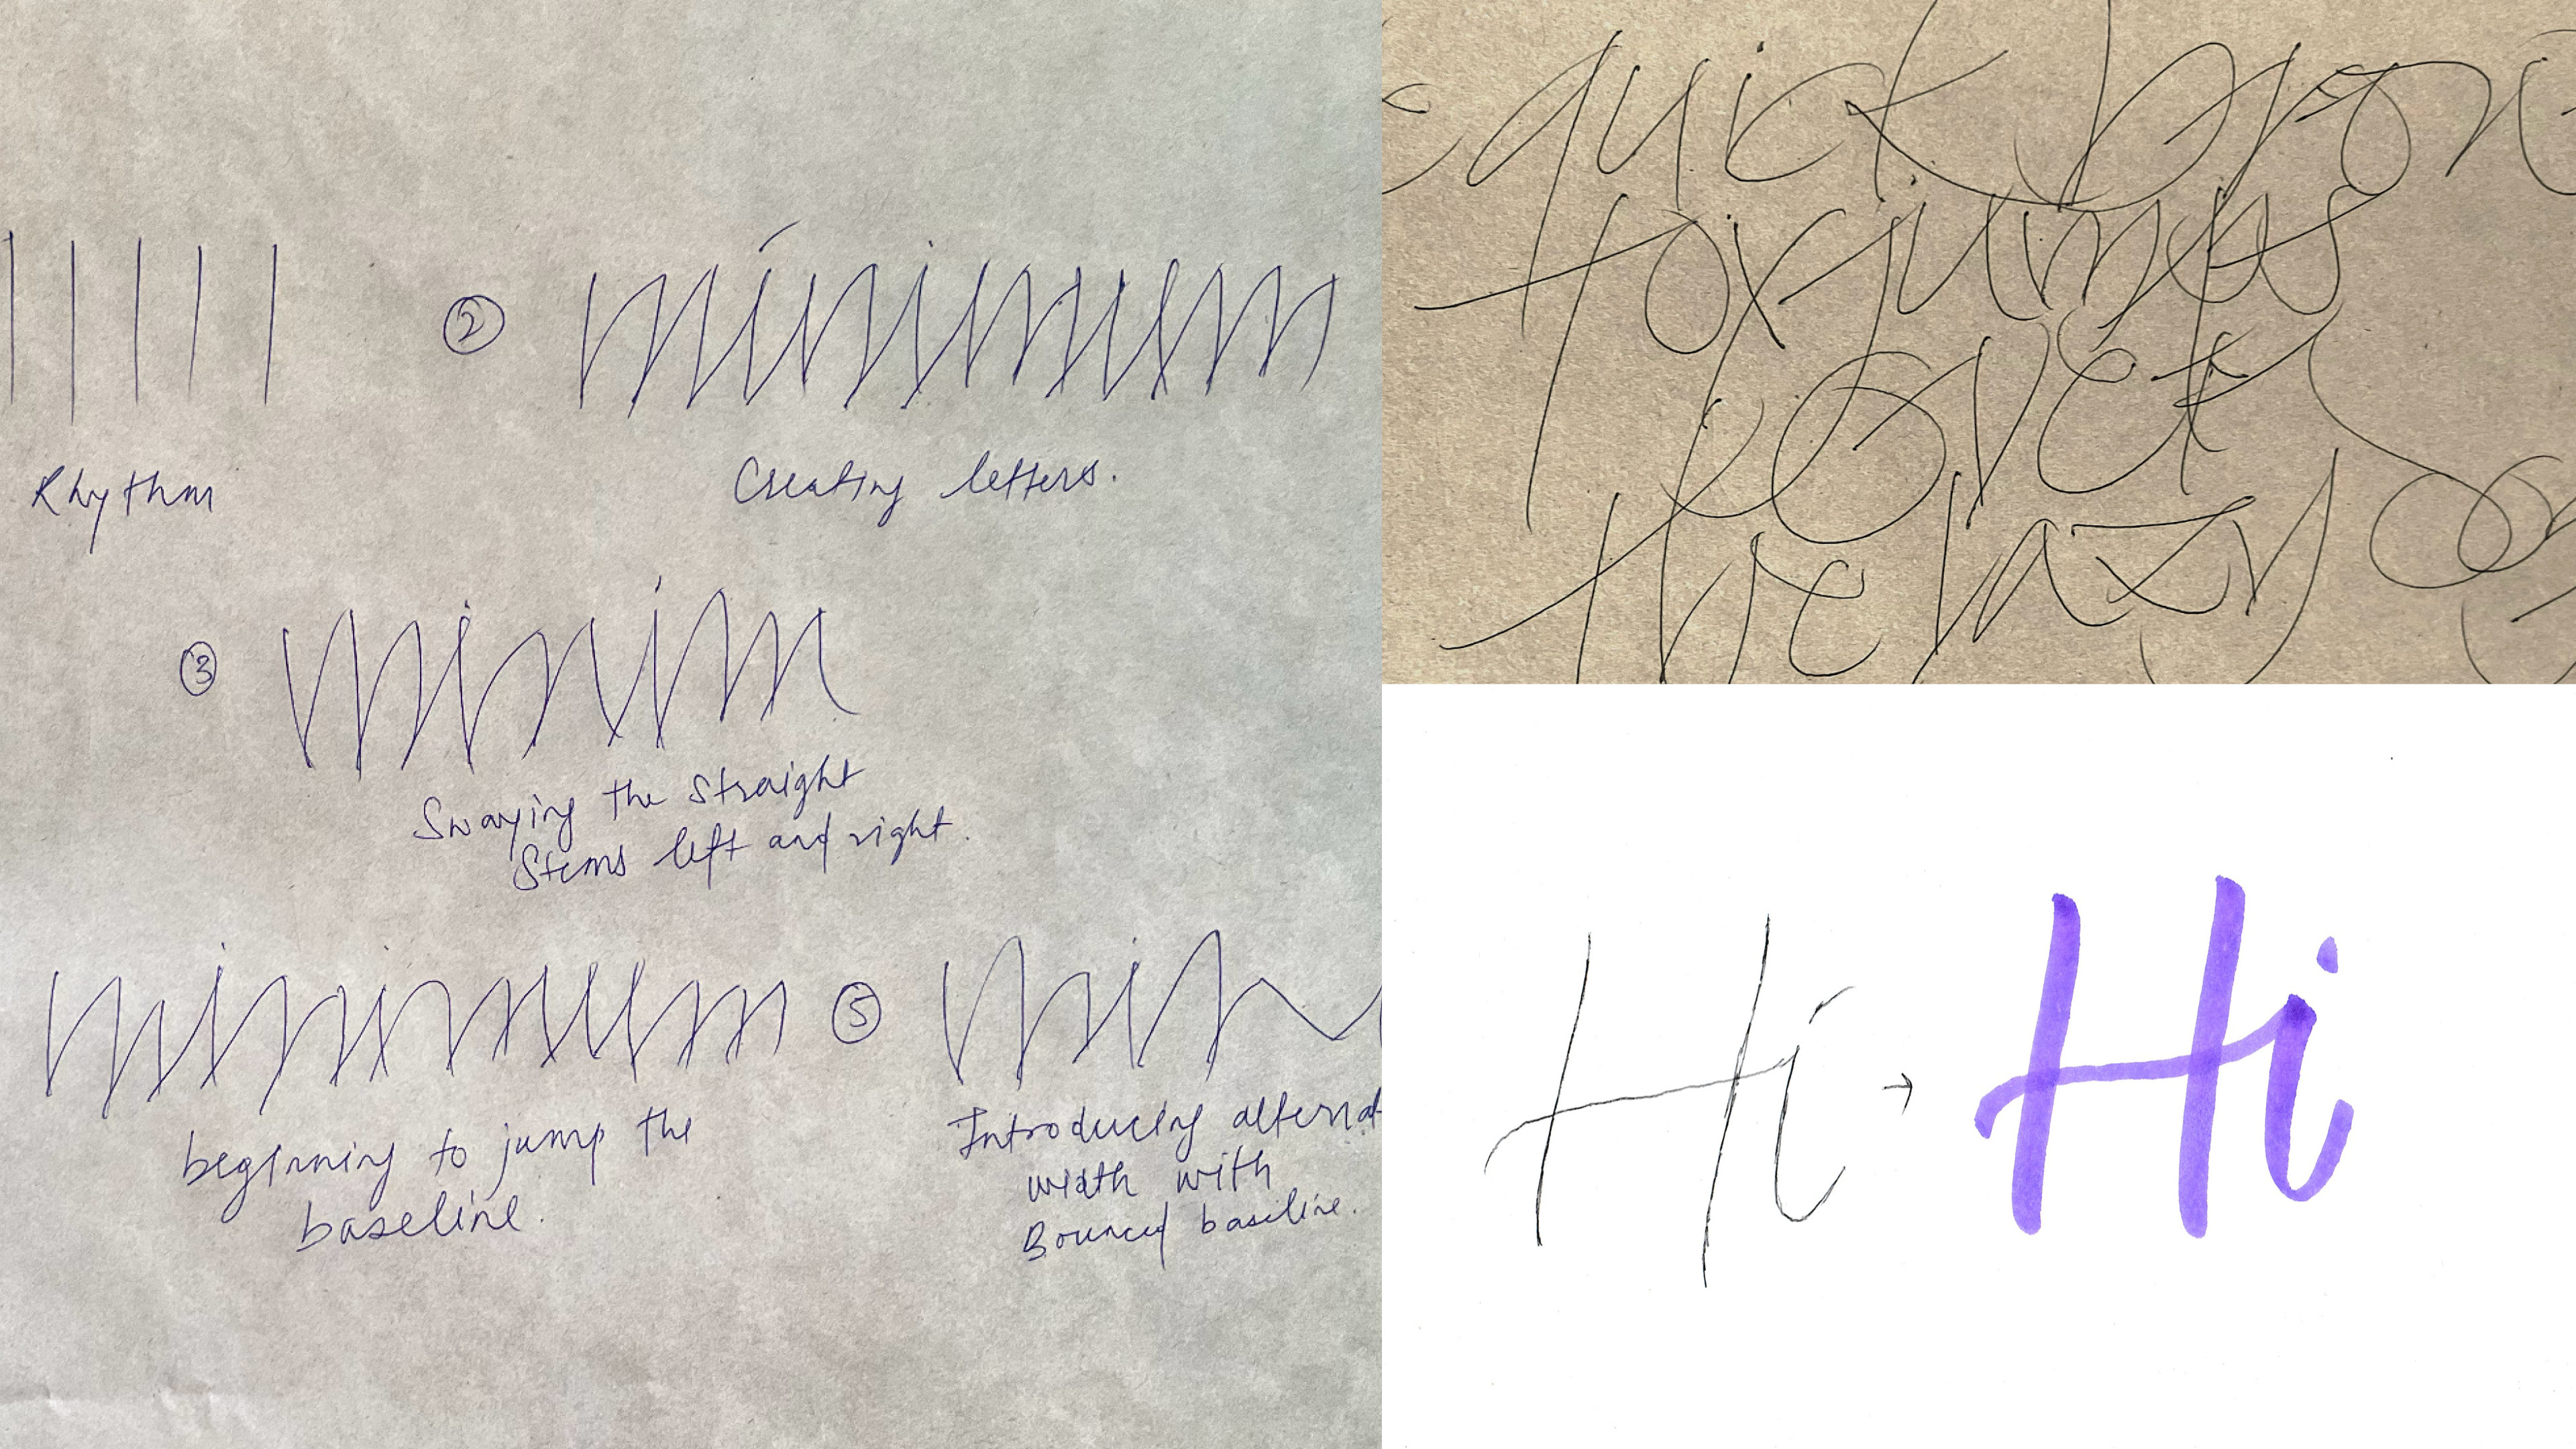 Rhythm
② minimum
Creating letters.
③ minim
Swaying the straight
Stems left and right.
minimum
beginning to jump the
baseline.
⑤ min
Introducing alternat
width with
Bounced baseline.
quick bro
fox jumps
over
the lazy
Hi → Hi